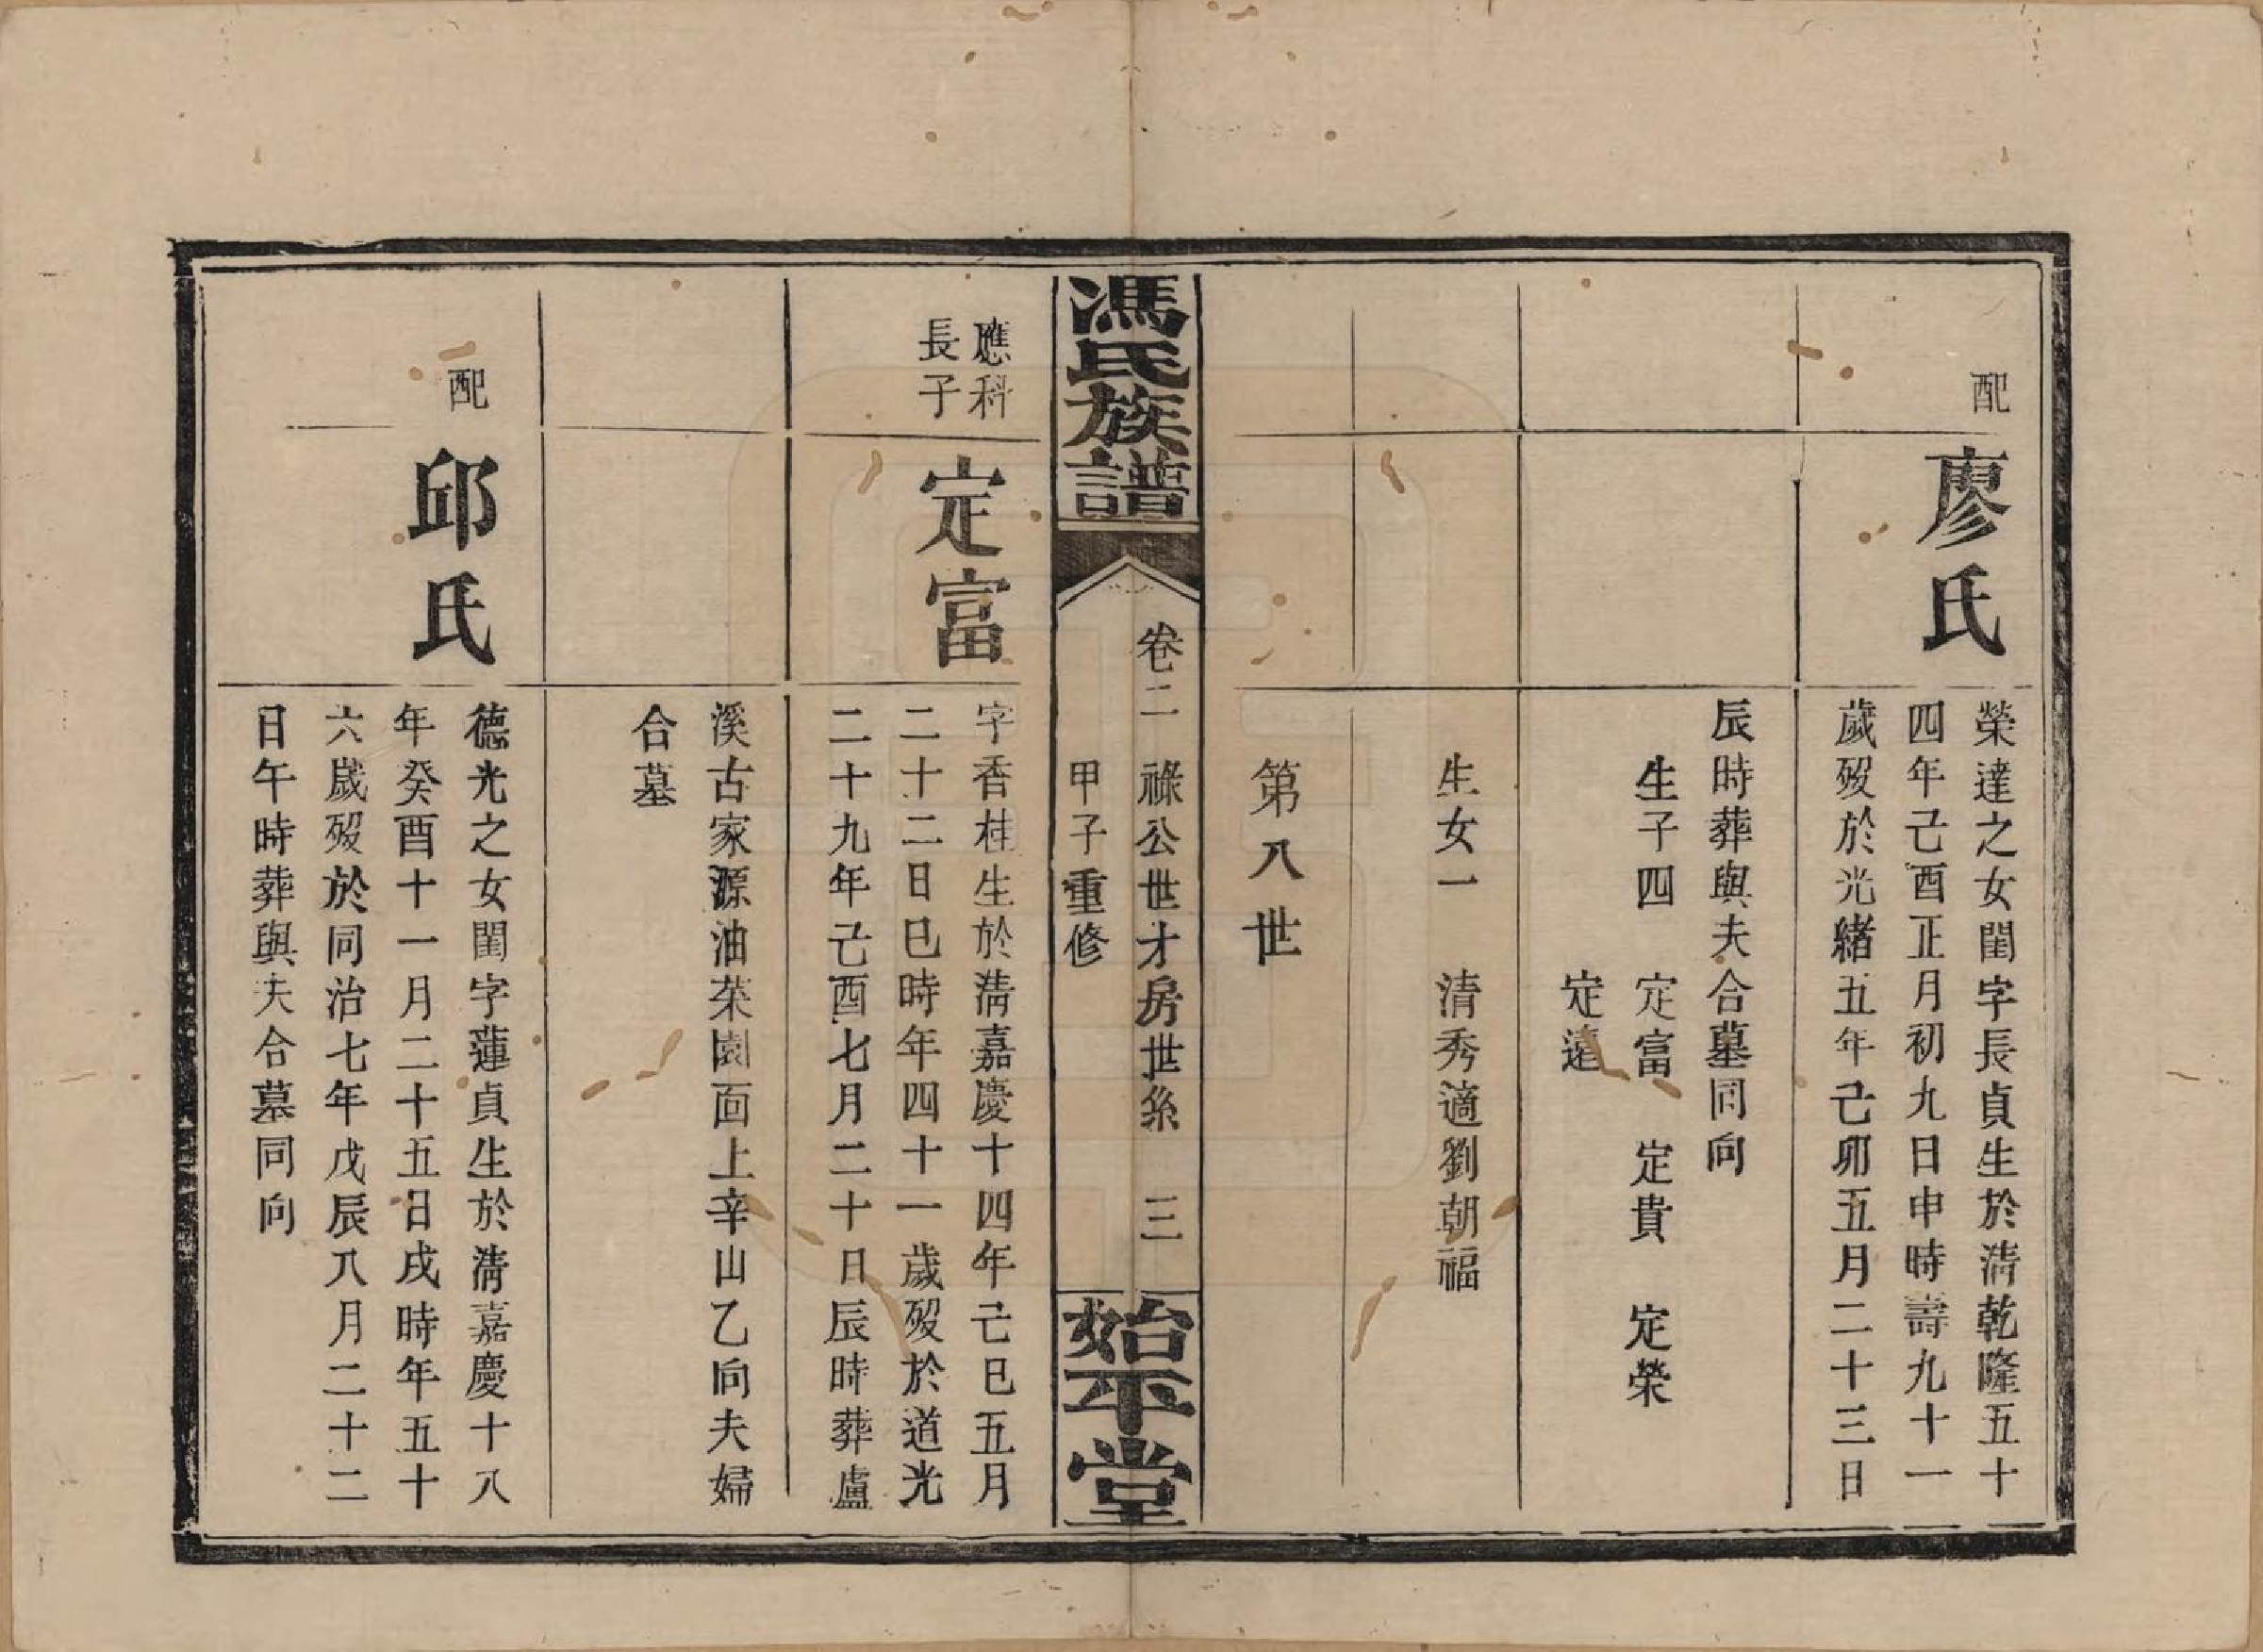 配
廖氏
榮達之女閨字長貞生於清乾隆五十
四年己酉正月初九日申時壽九十一
歲歿於光緒五年己卯五月二十三日
辰時葬與夫合墓同向
生子四 定富 定貴 定榮
定遠
生女一 清秀適劉朝福
第八世
馮氏族譜
卷二 祿公世才房世系 三
甲子重修
始平堂
應科
長子
定富
字香桂生於清嘉慶十四年己巳五月
二十二日巳時年四十一歲歿於道光
二十九年己酉七月二十日辰時葬盧
溪古家源油茶園面上辛山乙向夫婦
合墓
配
邱氏
德光之女閨字蓮貞生於清嘉慶十八
年癸酉十一月二十五日戌時年五十
六歲歿於同治七年戊辰八月二十二
日午時葬與夫合墓同向